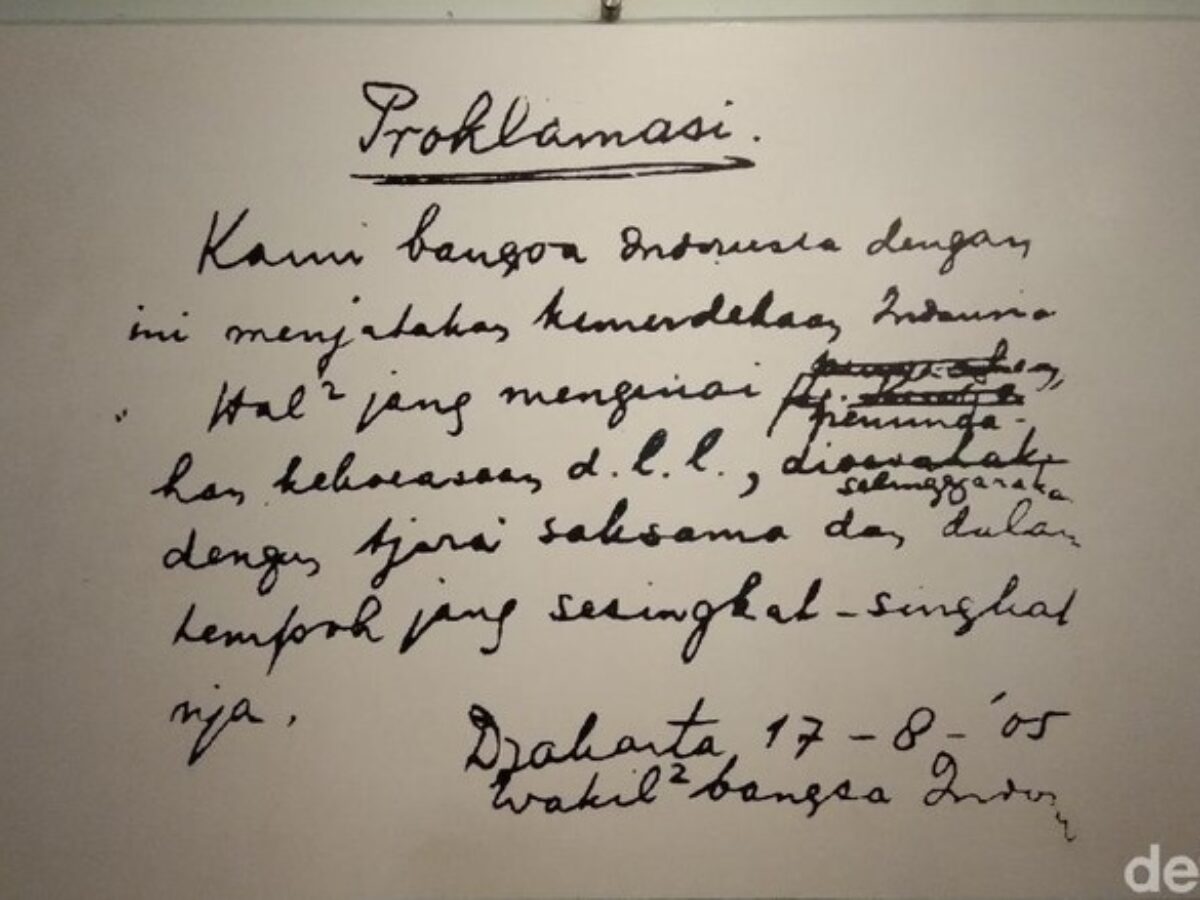 Proklamasi.
Kami bangsa Indonesia dengan
ini menjatakan kemerdekaan Indonesia
Hal² jang mengenai
peminda-
han kekoeasaan d.l.l., dioesahakan
selenggarakan
dengan tjara saksama dan dalam
tempoh jang sesingkat-singkat
nja.
Djakarta 17 - 8 - '05
Wakil² bangsa Indon
de